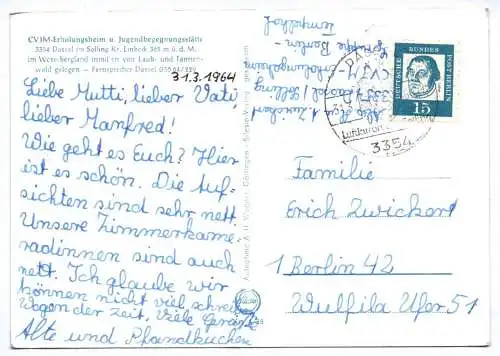 CVJM-Erholungsheim u. Jugendbegegnungsstätte
3354 Dassel im Solling Kr. Einbeck 365 m ü. d. M.
im Weserbergland inmitten von Laub- und Tannen-
wald gelegen — Fernsprecher Dassel 05564/
31.3.1964
Liebe Mutti, lieber Vati,
lieber Manfred!
Wie geht es Euch? Hier
ist es schön. Die Auf-
sichten sind sehr nett.
Unsere Zimmerkame-
radinnen sind auch
nett. Ich glaube wir
können nicht viel schrei
Wegen der Zeit. Viele Grüße
Alte und Pfandkuchen
Aufnahme A. H. Göttingen
Zwickert
CVJM - Erholungsheim
Dassel / Solling
Gruppe Berlin -
Tempelhof
DEUTSCHE BUNDESPOST BERLIN
15
Luftkurort
3354
Familie
Erich Zwickert
1 Berlin 42
Wulfila Ufer 51